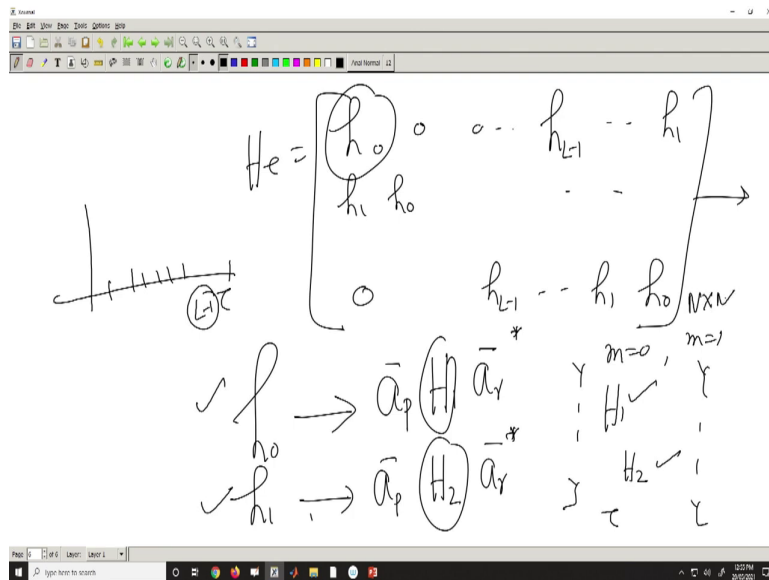 Xournal
File Edit View Page Tools Options Help
Arial Normal 12
He = [ h₀ 0 0 .. h_{L-1} -- h₁
h₁ h₀ - -
0 h_{L-1} -- h₁ h₀ ] N×N →
(L-1)τ
✓ h₀ → ā_p H₁ ā_r* Y m=0, m=1
H₁ ✓ Y
✓ h₁ → ā_p H₂ ā_r* H₂ ✓
Y τ Y
Page 6 of 6 Layer: Layer 1
Type here to search
12:55 PM